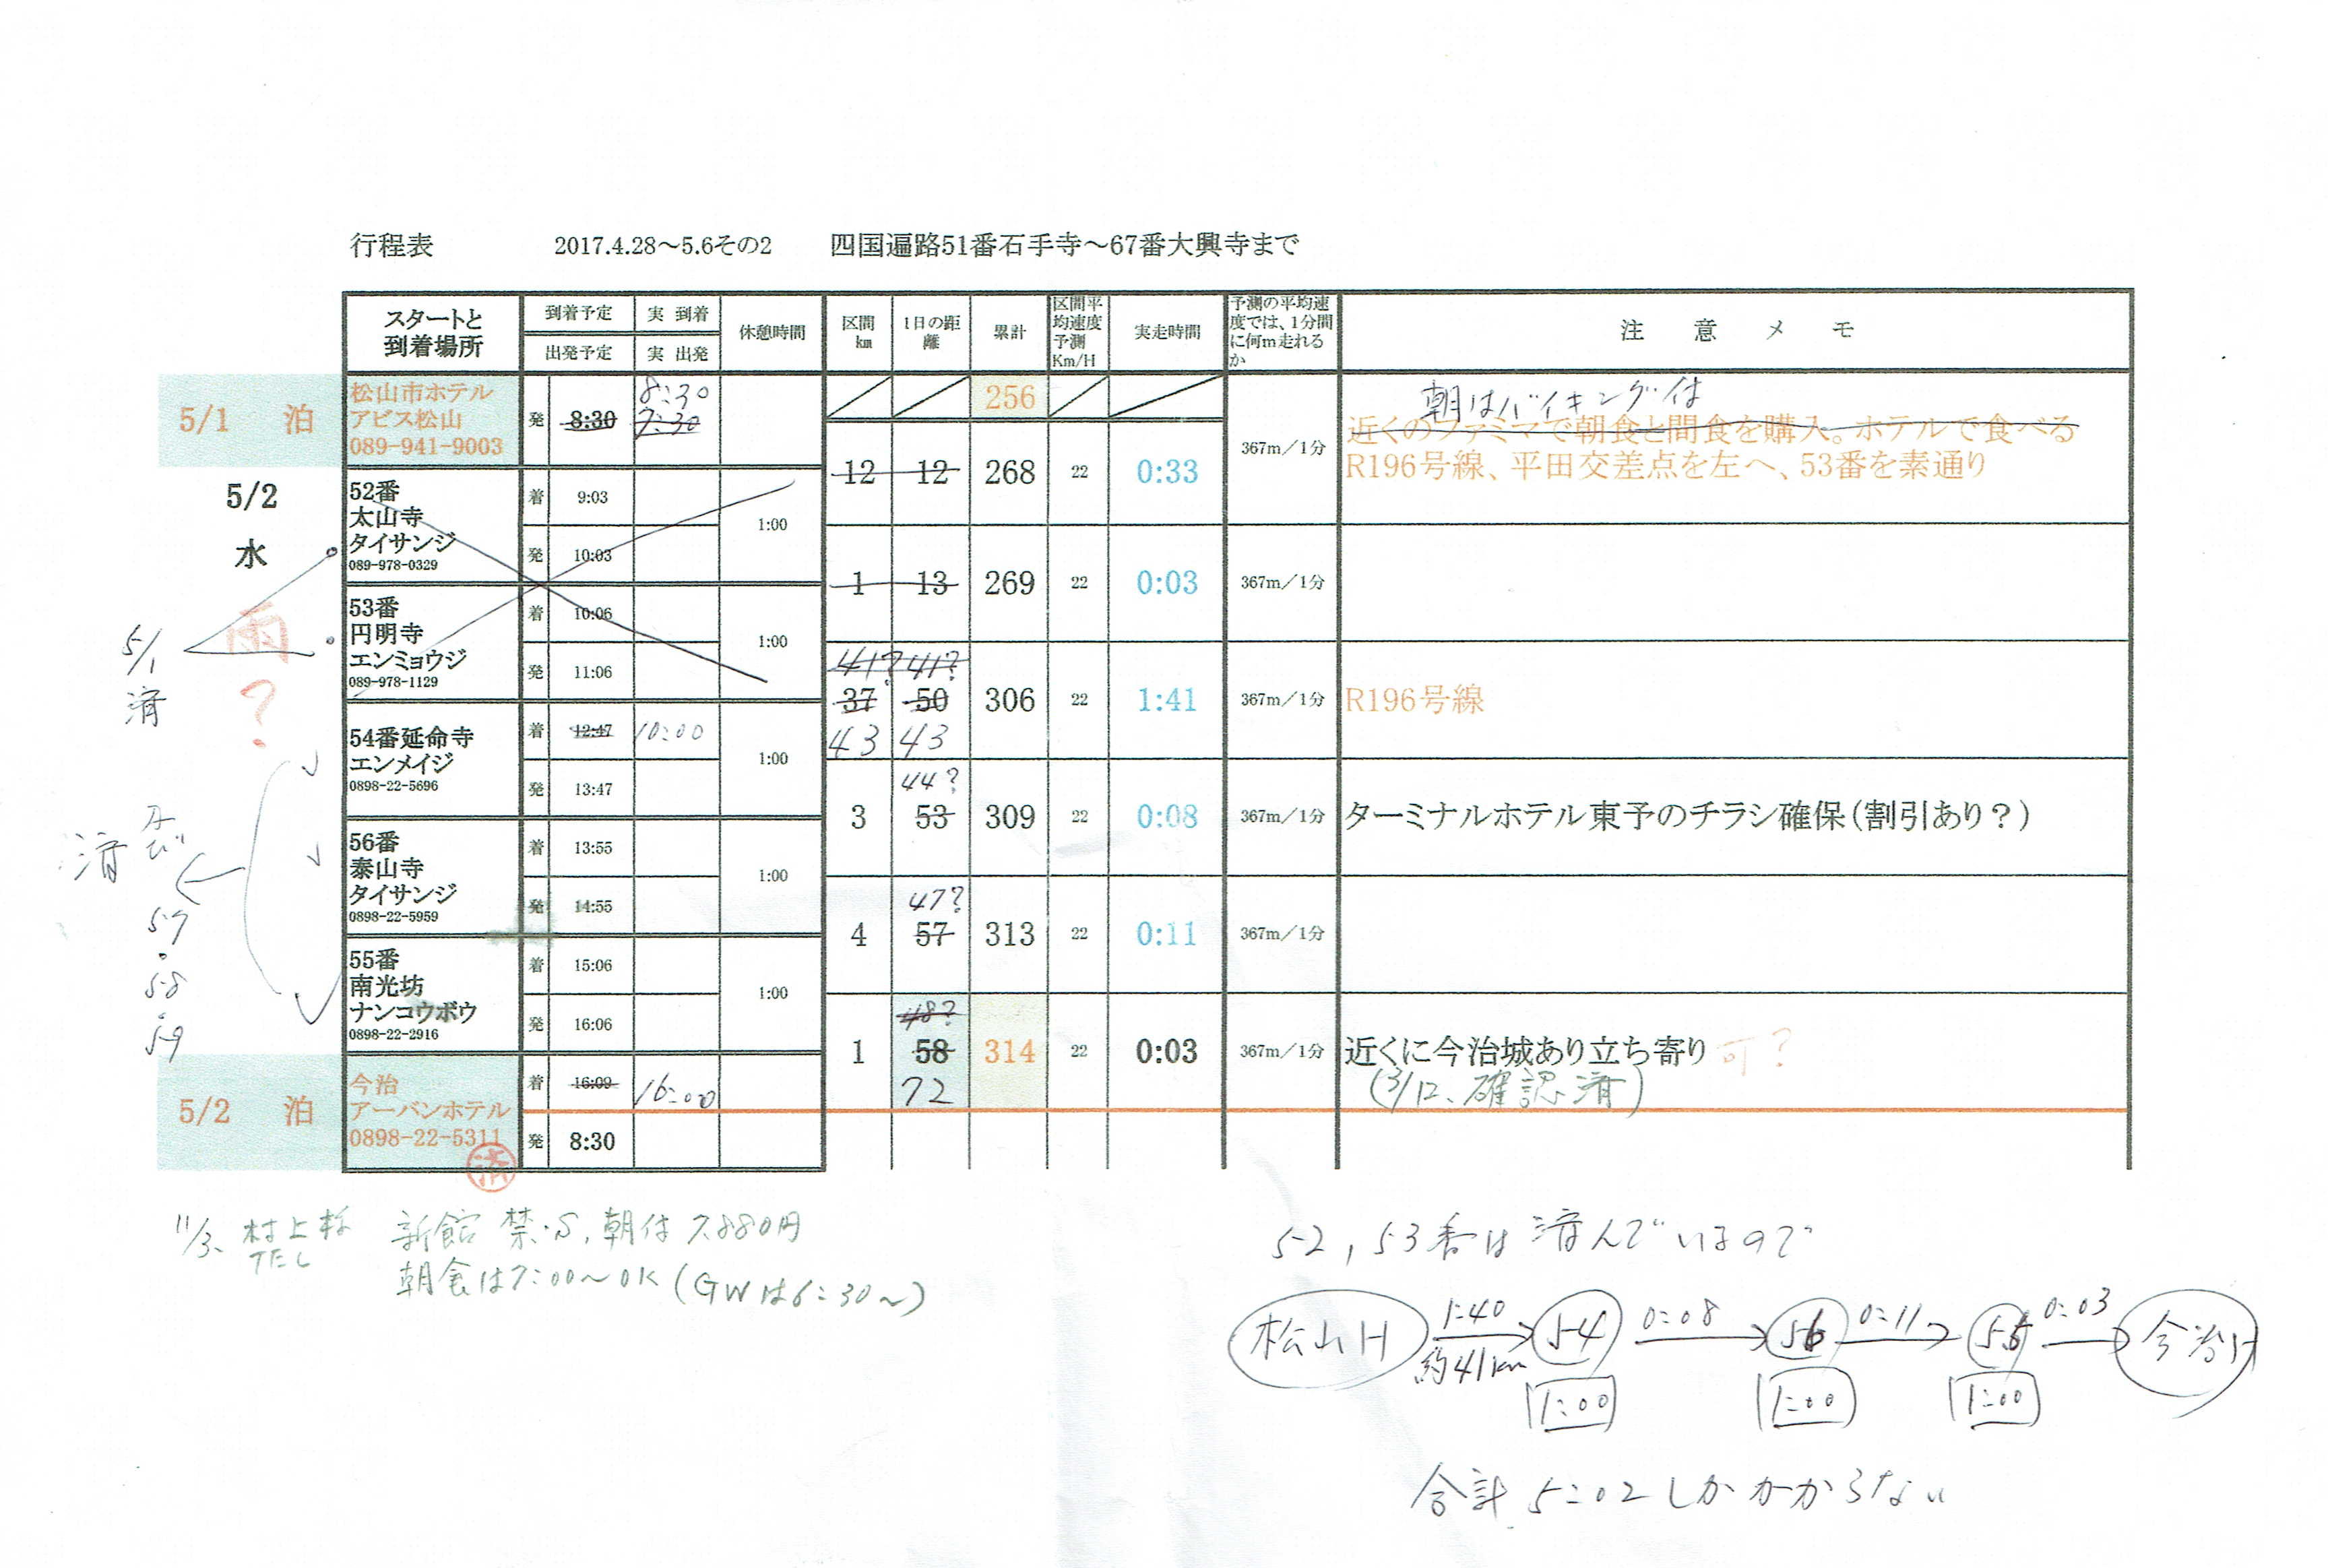 行程表 2017.4.28～5.6その2 四国遍路51番石手寺～67番大興寺まで
スタートと到着場所
到着予定
出発予定
実 到着
実 出発
休憩時間
区間km
1日の距離
累計
区間平均速度予測Km/H
実走時間
予測の平均速度では、1分間に何m走れるか
注 意 メ モ
5/1 泊
松山市ホテル
アビス松山
089-941-9003
発 8:30
8:30
7:30
256
朝はバイキング付
近くのファミマで朝食と間食を購入。ホテルで食べる
R196号線、平田交差点を左へ、53番を素通り
12 12 268 22 0:33 367m／1分
5/2
水
雨
?
5/1
済
52番
太山寺
タイサンジ
089-978-0329
着 9:03
発 10:03
1:00
1 13 269 22 0:03 367m／1分
53番
円明寺
エンミョウジ
089-978-1129
着 10:06
発 11:06
1:00
41? 41?
37 50 306 22 1:41 367m／1分 R196号線
43 43
54番延命寺
エンメイジ
0898-22-5696
着 12:47 10:00
発 13:47
1:00
44?
3 53 309 22 0:08 367m／1分 ターミナルホテル東予のチラシ確保（割引あり？）
56番
泰山寺
タイサンジ
0898-22-5959
着 13:55
発 14:55
1:00
47?
4 57 313 22 0:11 367m／1分
及び
済
57
・
58
・
59
55番
南光坊
ナンコウボウ
0898-22-2916
着 15:06
発 16:06
1:00
48?
1 58 314 22 0:03 367m／1分 近くに今治城あり立ち寄り可?
72
(3/12、確認済)
5/2 泊
今治
アーバンホテル
0898-22-5311
済
着 16:09 16:00
発 8:30
11/3、村上様 新館 禁・S、朝付 7.880円
TEL
朝食は7:00～OK (GWは6:30～)
52, 53番は済んでいるので
松山H 1:40 54 0:08 56 0:11 55 0:03 今治H
約41km
1:00 1:00 1:00
合計 5:02しかかからない